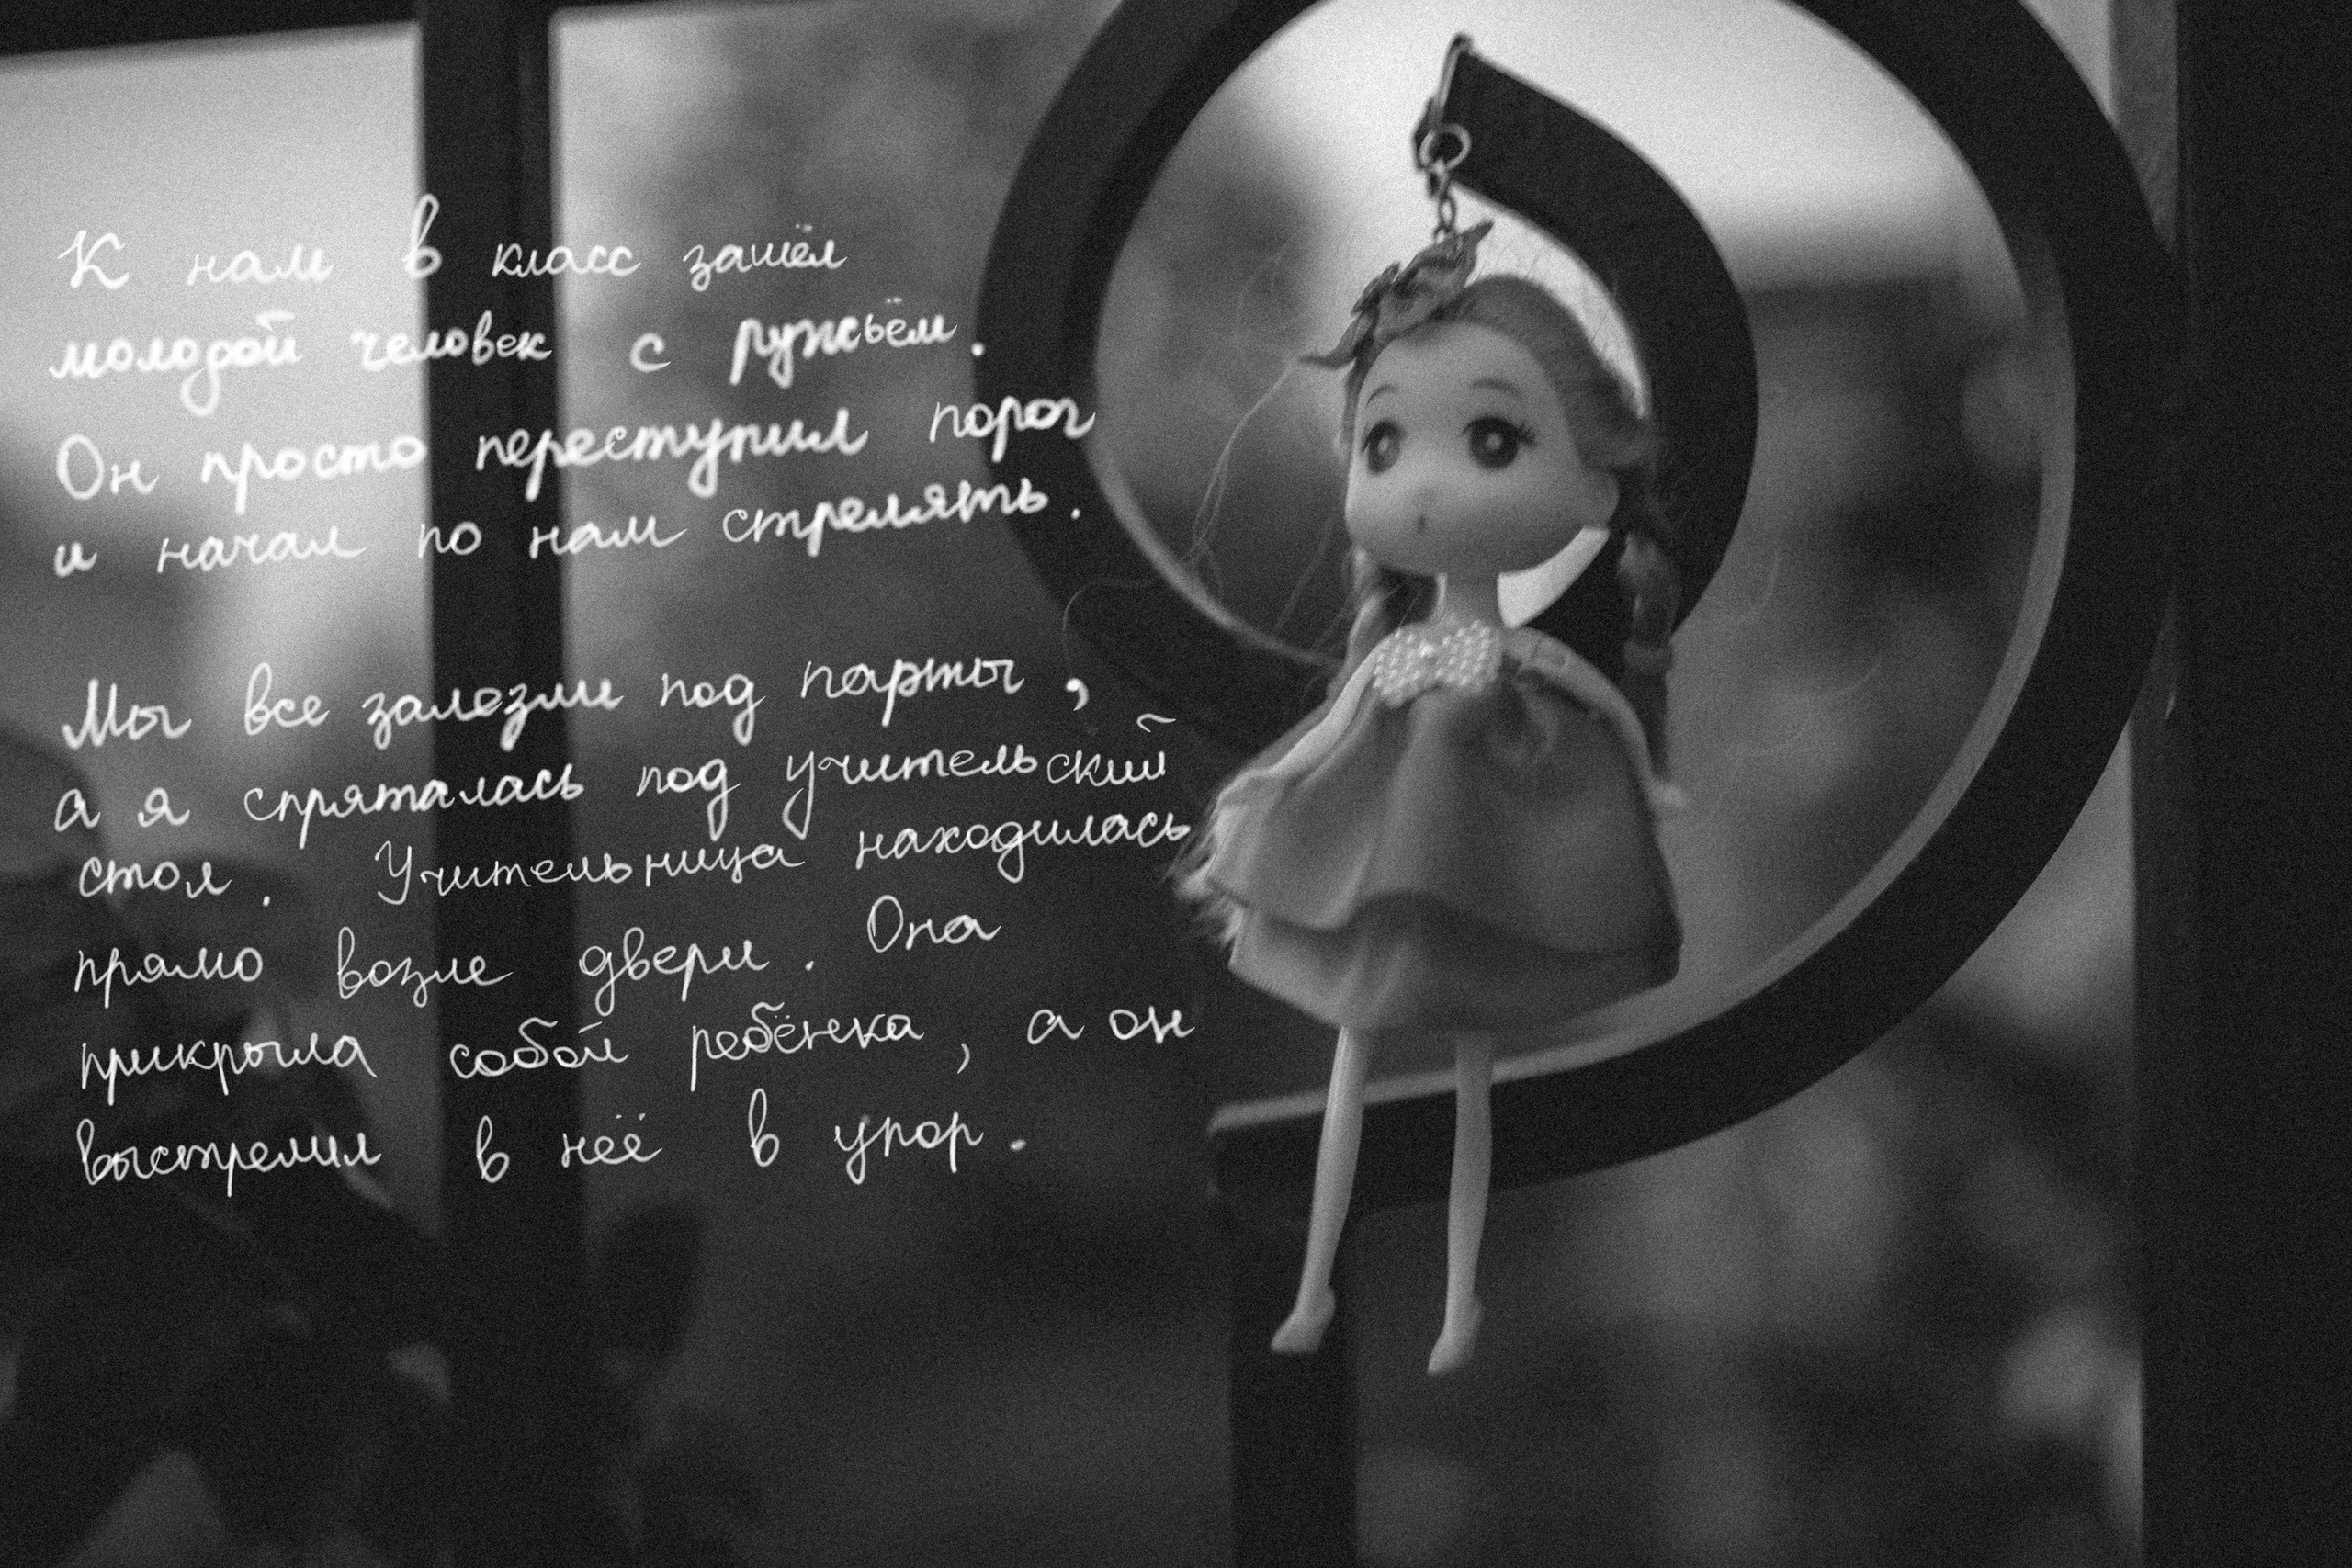 К нам в класс зашёл
молодой человек с ружьём.
Он просто переступил порог
и начал по нам стрелять.
Мы все залезли под парты,
а я спряталась под учительский
стол. Учительница находилась
прямо возле двери. Она
прикрыла собой ребёнка, а он
выстрелил в неё в упор.